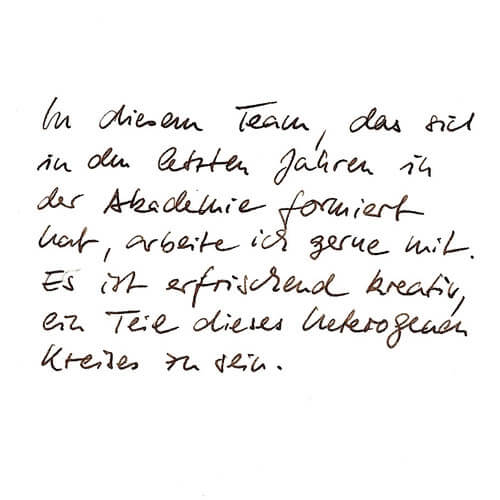 In diesem Team, das sich
in den letzten Jahren in
der Akademie formiert
hat, arbeite ich gerne mit.
Es ist erfrischend kreativ,
ein Teil dieses heterogenen
Kreises zu sein.